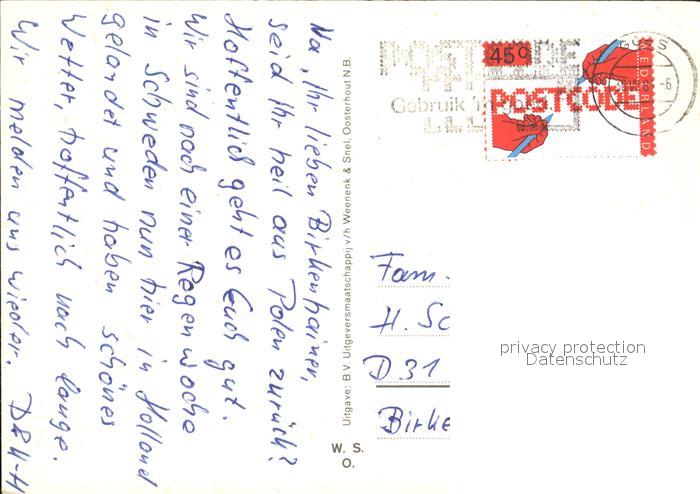 Na, Ihr lieben Birkenhainer,
seid Ihr heil aus Polen zurück?
Hoffentlich geht es Euch gut.
Wir sind nach einer Regenwoche
in Schweden nun hier in Holland
gelandet und haben schönes
Wetter, hoffentlich noch lange.
Wir melden uns wieder.
Uitgave: B.V. Uitgeversmaatschappij v/h Weenenk & Snel, Oosterhout N.B.
W. S.
O.
45c
POSTCODE
NEDERLAND
Gebruik
POSTCODE
Fam.
H. Sc
D 31
Birke
privacy protection
Datenschutz